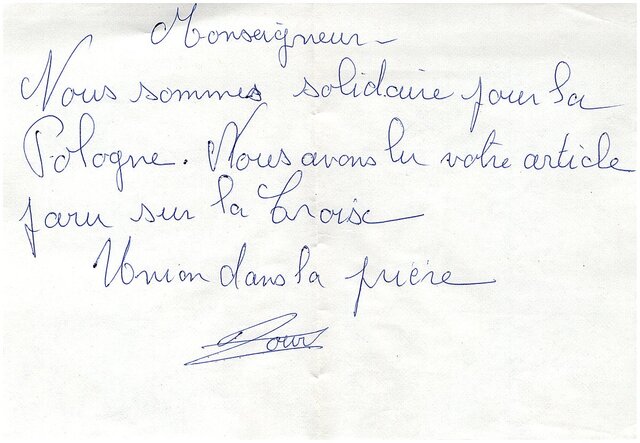 Monseigneur -
Nous sommes solidaire pour la
Pologne. Nous avons lu votre article
paru sur la Croix
Union dans la prière